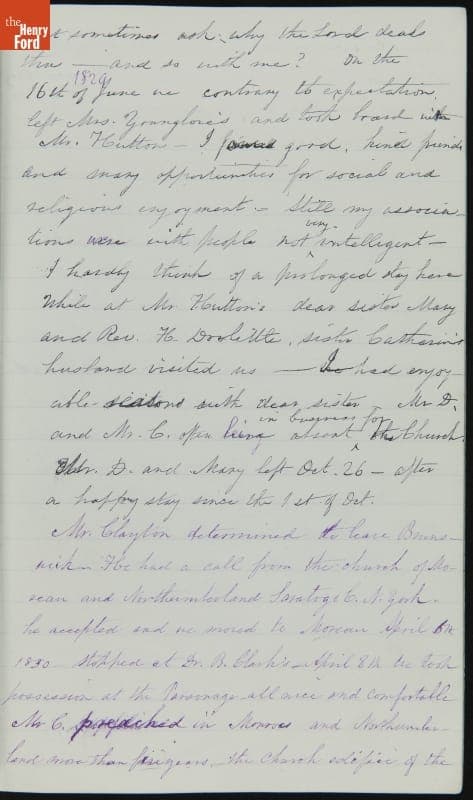 the
Henry
Ford
sometimes ask why the Lord deals
thus — and so with me? On the
1829
16th of June we contrary to expectation,
left Mrs. Younglove's and took board with
Mr. Hutton — I found good, kind friends
and many opportunities for social and
religious enjoyment — Still my associa-
tions were with people not very intelligent —
I hardly think of a prolonged stay here
While at Mr. Hutton's dear sister Mary
and Rev. H. Doolittle, sister Catherine's
husband visited us — had enjoy-
able seasons with dear sister — Mr D.
and Mr. C. often being absent in business for the Church.
Mr. D. and Mary left Oct. 26 — after
a happy stay since the 1st of Oct.
Mr. Clayton determined to leave Bruns-
wick — He had a call from the church of Mo-
reau and Northumberland Saratoga C. N. York.
he accepted and we moved to Moreau April 6th
1830 stopped at Dr. B. Clark's — April 8th we took
possession at the Parsonage all nice and comfortable
Mr C. preached in and Northumber-
land more than years, the church edifice of the